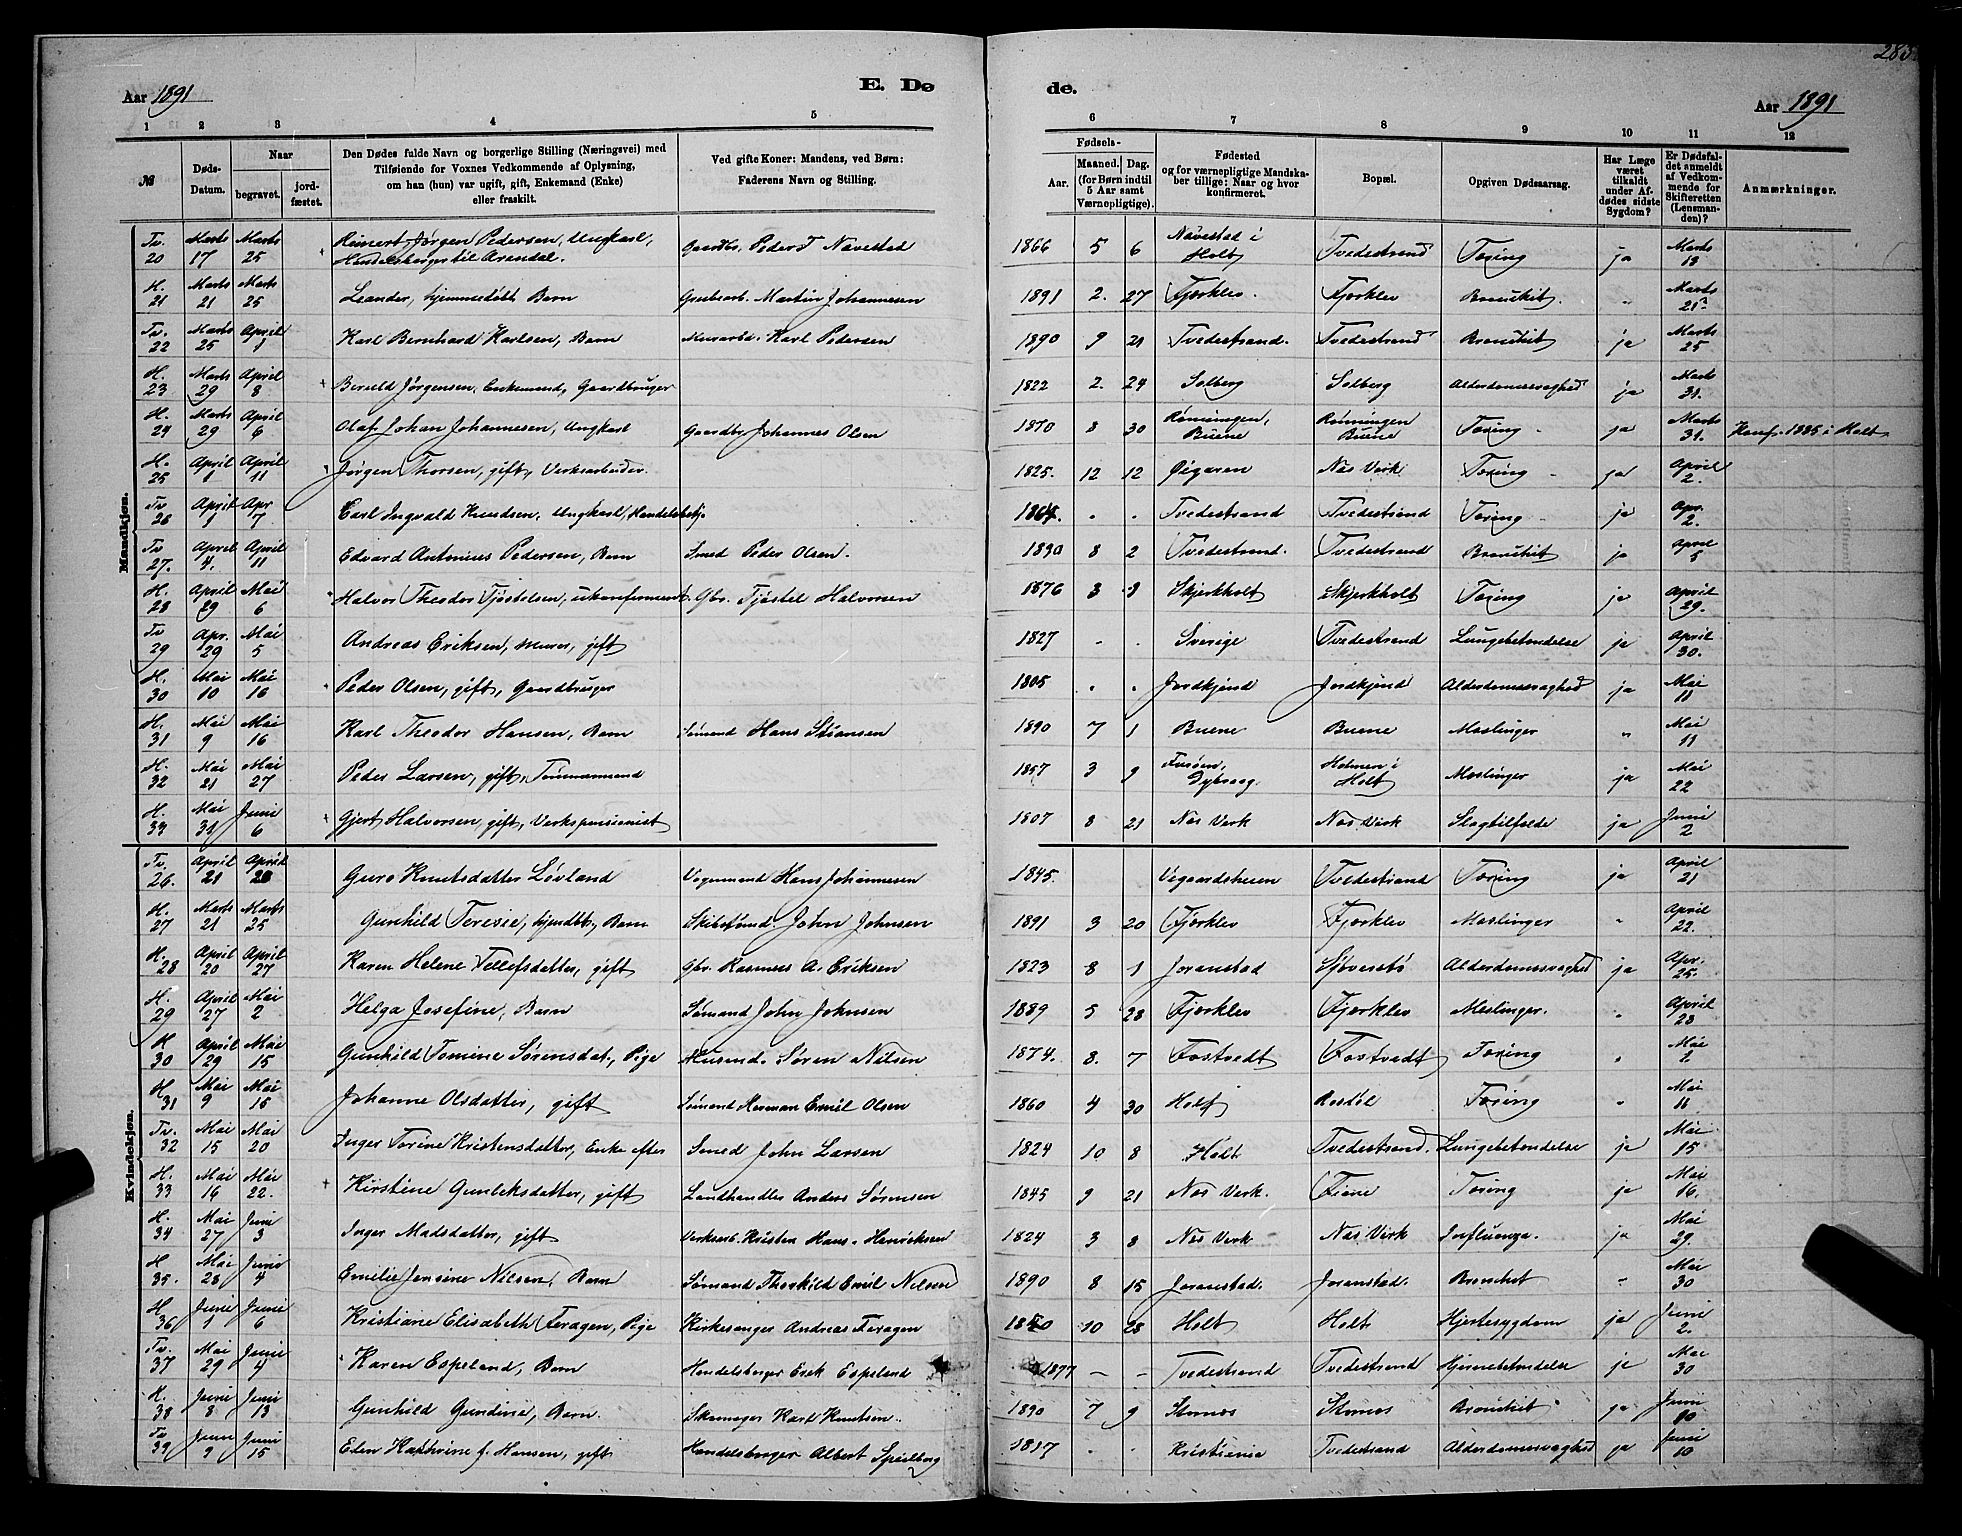 283
Aar 1891
E. Dø
de.
Aar 1891
1 2 3 4 5 6 7 8 9 10 11 12
№ Døds-Datum. Naar begravet. jordfæstet. Den Dødes fulde Navn og borgerlige Stilling (Næringsvei) med Tilføiende for Voxnes Vedkommende af Oplysning, om han (hun) var ugift, gift, Enkemand (Enke) eller fraskilt. Ved gifte Koner: Mandens, ved Børn: Faderens Navn og Stilling. Fødsels- Aar. Maaned. Dag. (for Børn indtil 5 Aar samt Værnepligtige). Fødested og for værnepligtige Mandskaber tillige: Naar og hvor konfirmeret. Bopæl. Opgiven Dødsaarsag. Har Læge været tilkaldt under Afdødes sidste Sygdom? Er Dødsfaldet anmeldt af Vedkommende for Skifteretten (Lensmanden)? Anmærkninger.
Mandkjøn.
Tv. 20 Marts 17 Marts 25 + Reinert Jørgen Pedersen, Ungkarl, Handelsborger til Arendal. Gaardbr. Peder T Navestad 1866 5 6 Navestad i Holt Tvedestrand Tæring ja Marts 18
H. 21 Marts 21 Marts 25 Leander, hjemmedøbt Barn Grubearb. Martin Johannesen 1891 2. 27 Fjærklev Fjærklev Bronchit. " Marts 21
Tv. 22 Marts 25 April 1 Karl Bernhard Karlsen, Barn Murarbd. Karl Pedersen 1890 9 21 Tvedestrand. Tvedestrand Bronchit ja Marts 25
H. 23 Marts 29 April 8 + Beruld Jørgensen, Enkemand, Gaardbruger 1822 2. 24 Solberg Solberg Alderdomssvaghed ja Marts 31.
H. 24 Marts 29 April 6 Olaf Johan Johannesen, Ungkarl Gaardbr Johannes Olsen 1870 8 30 Rømingen, Buene Rømingen Buene Tæring ja Marts 31. Konf. 1885 i Holt
H. 25 April 1 April 11 Jørgen Thorsen, gift, Verksarbeider. 1825. 12 12 Øigaren Næs Verk Tæring ja April 2.
Tv 26 April 1 Apr 7 Carl Ingvald Knudsen, Ungkarl, Handelsbetj. 1864. " " Tvedestrand Tvedestrand Tæring ja Apr. 2.
Tv 27. April 4. April 11 Edvard Antonius Pedersen, Barn Smed Peder Olsen. 1890 8 2 Tvedestrand. Tvedestrand Bronchit ja April 5
H. 28 April 29 Mai 6 Halvor Theodor Tjøstelsen, ukonfirmeret Gbr. Tjøstel Halvorsen 1876 3 3 Skjerkholt Skjerkholt Tæring ja April 29.
Tv 29 Apr. 29 Mai 5 Andreas Eriksen, Murer, gift 1827 - - Sverige Tvedestrand Lungebetændelse ja April 30.
H. 30 Mai 10 Mai 16 Peder Olsen, gift, Gaardbruger 1805 " " Jordkjend Jordkjend Alderdomssvaghed ja Mai 11
H. 31 Mai 9 Mai 16 Karl Theodor Hansen, Barn Sømand Hans Stiansen 1890 7 1 Buene Buene Meslinger " Mai 11
H. 32 Mai 21 Mai 27 Peder Larsen, gift, Tømmermand 1857 3 9 Dybvaag. Holmen i Holt Meslinger ja Mai 22
H. 33 Mai 31 Juni 6 + Gjert Halvorsen gift, Verkspensionist 1807 8 21 Næs Verk Næs Verk Slagtilfælde ja Juni 2
Kvindekjøn.
Tv. 26. April 21 April 28 Guro Knutsdatter Løvland Vognmand Hans Johannesen 1845. Vegaardsheien Tvedestrand Tæring ja April 21
H. 27 Marts 21 Marts 25 Gunhild Teresie, hjemdbt, Barn Skibstømd. John Johnsen 1891 3 20 Fjærklev Fjærklev Meslinger " April 22.
H. 28 April 20 April 27 Karen Helene Tellefsdatter, gift Gbr. Rasmus A. Eriksen 1823 8 1 Joranstad Sjøverstø Alderdomssvaghed ja Apr. 25
H. 29 April 27 Mai 2 Helga Josefine, Barn Sømand John Johnsen 1889 5 28 Fjærklev Fjærklev Meslinger. " April 28
H 30 April 29 Mai 15 Gunhild Tomine Sørensdat., Pige Husmd. Søren Nilsen 1874. 8. 7 Fostvedt Fostvedt Tæring " Mai 2.
H 31 Mai 9 Mai 15 Johanne Olsdatter, gift Sømand Herman Emil Olsen 1860 4 30 Holt Rostøl Tæring " Mai 11
Tv. 32 Mai 15 Mai 20 Inger Torine Kristensdatter, Enke efter Smed John Larsen 1824 10 8 Holt Tvedestrand. Lungebetændelse ja Mai 15
H. 33 Mai 16 Mai 22. + Kirstine Gunleksdatter, gift Landhandler Anders Sørensen 1845 9 21 Næs Verk. Fiane Tæring ja Mai 16.
H. 34 Mai 27 Juni 3 Inger Madsdatter, gift Verksarb. Kristen Hans. Henriksen 1824 3 8 Næs Verk Næs Verk Influenza. ja Mai 29.
H 35. Mai 28 Juni 4 Emilie Jensine Nilsen, Barn Sømand Thorkild Emil Nilsen 1890 8 15 Joranstad. Joranstad. Bronchit " Mai 30
H 36 Juni 1 Juni 6 Kristiane Elisabeth Feragen, Pige Kirkesanger Andreas Feragen 10 28 Holt Holt Hjertesygdom ja Juni 2.
Tv. 37 Mai 29 Juni 4 Karen Espeland, Barn Handelsborger Erik Espeland 1877 - - Tvedestrand Tvedestrand Hjernebetændelse ja Mai 30
H. 38 Juni 8 Juni 13 Gunhild Gundine, Barn. Skomager Karl Knutsen. 1890 7 9 Stemnæs Stemnæs Bronchit ja Juni 10
Tv 39 Juni 9 Juni 15 Elen Kathrine f. Hansen, gift Handelsborger Albert Speilberg 1817 " " Kristiania Tvedestrand Alderdomssvaghed ja Juni 10